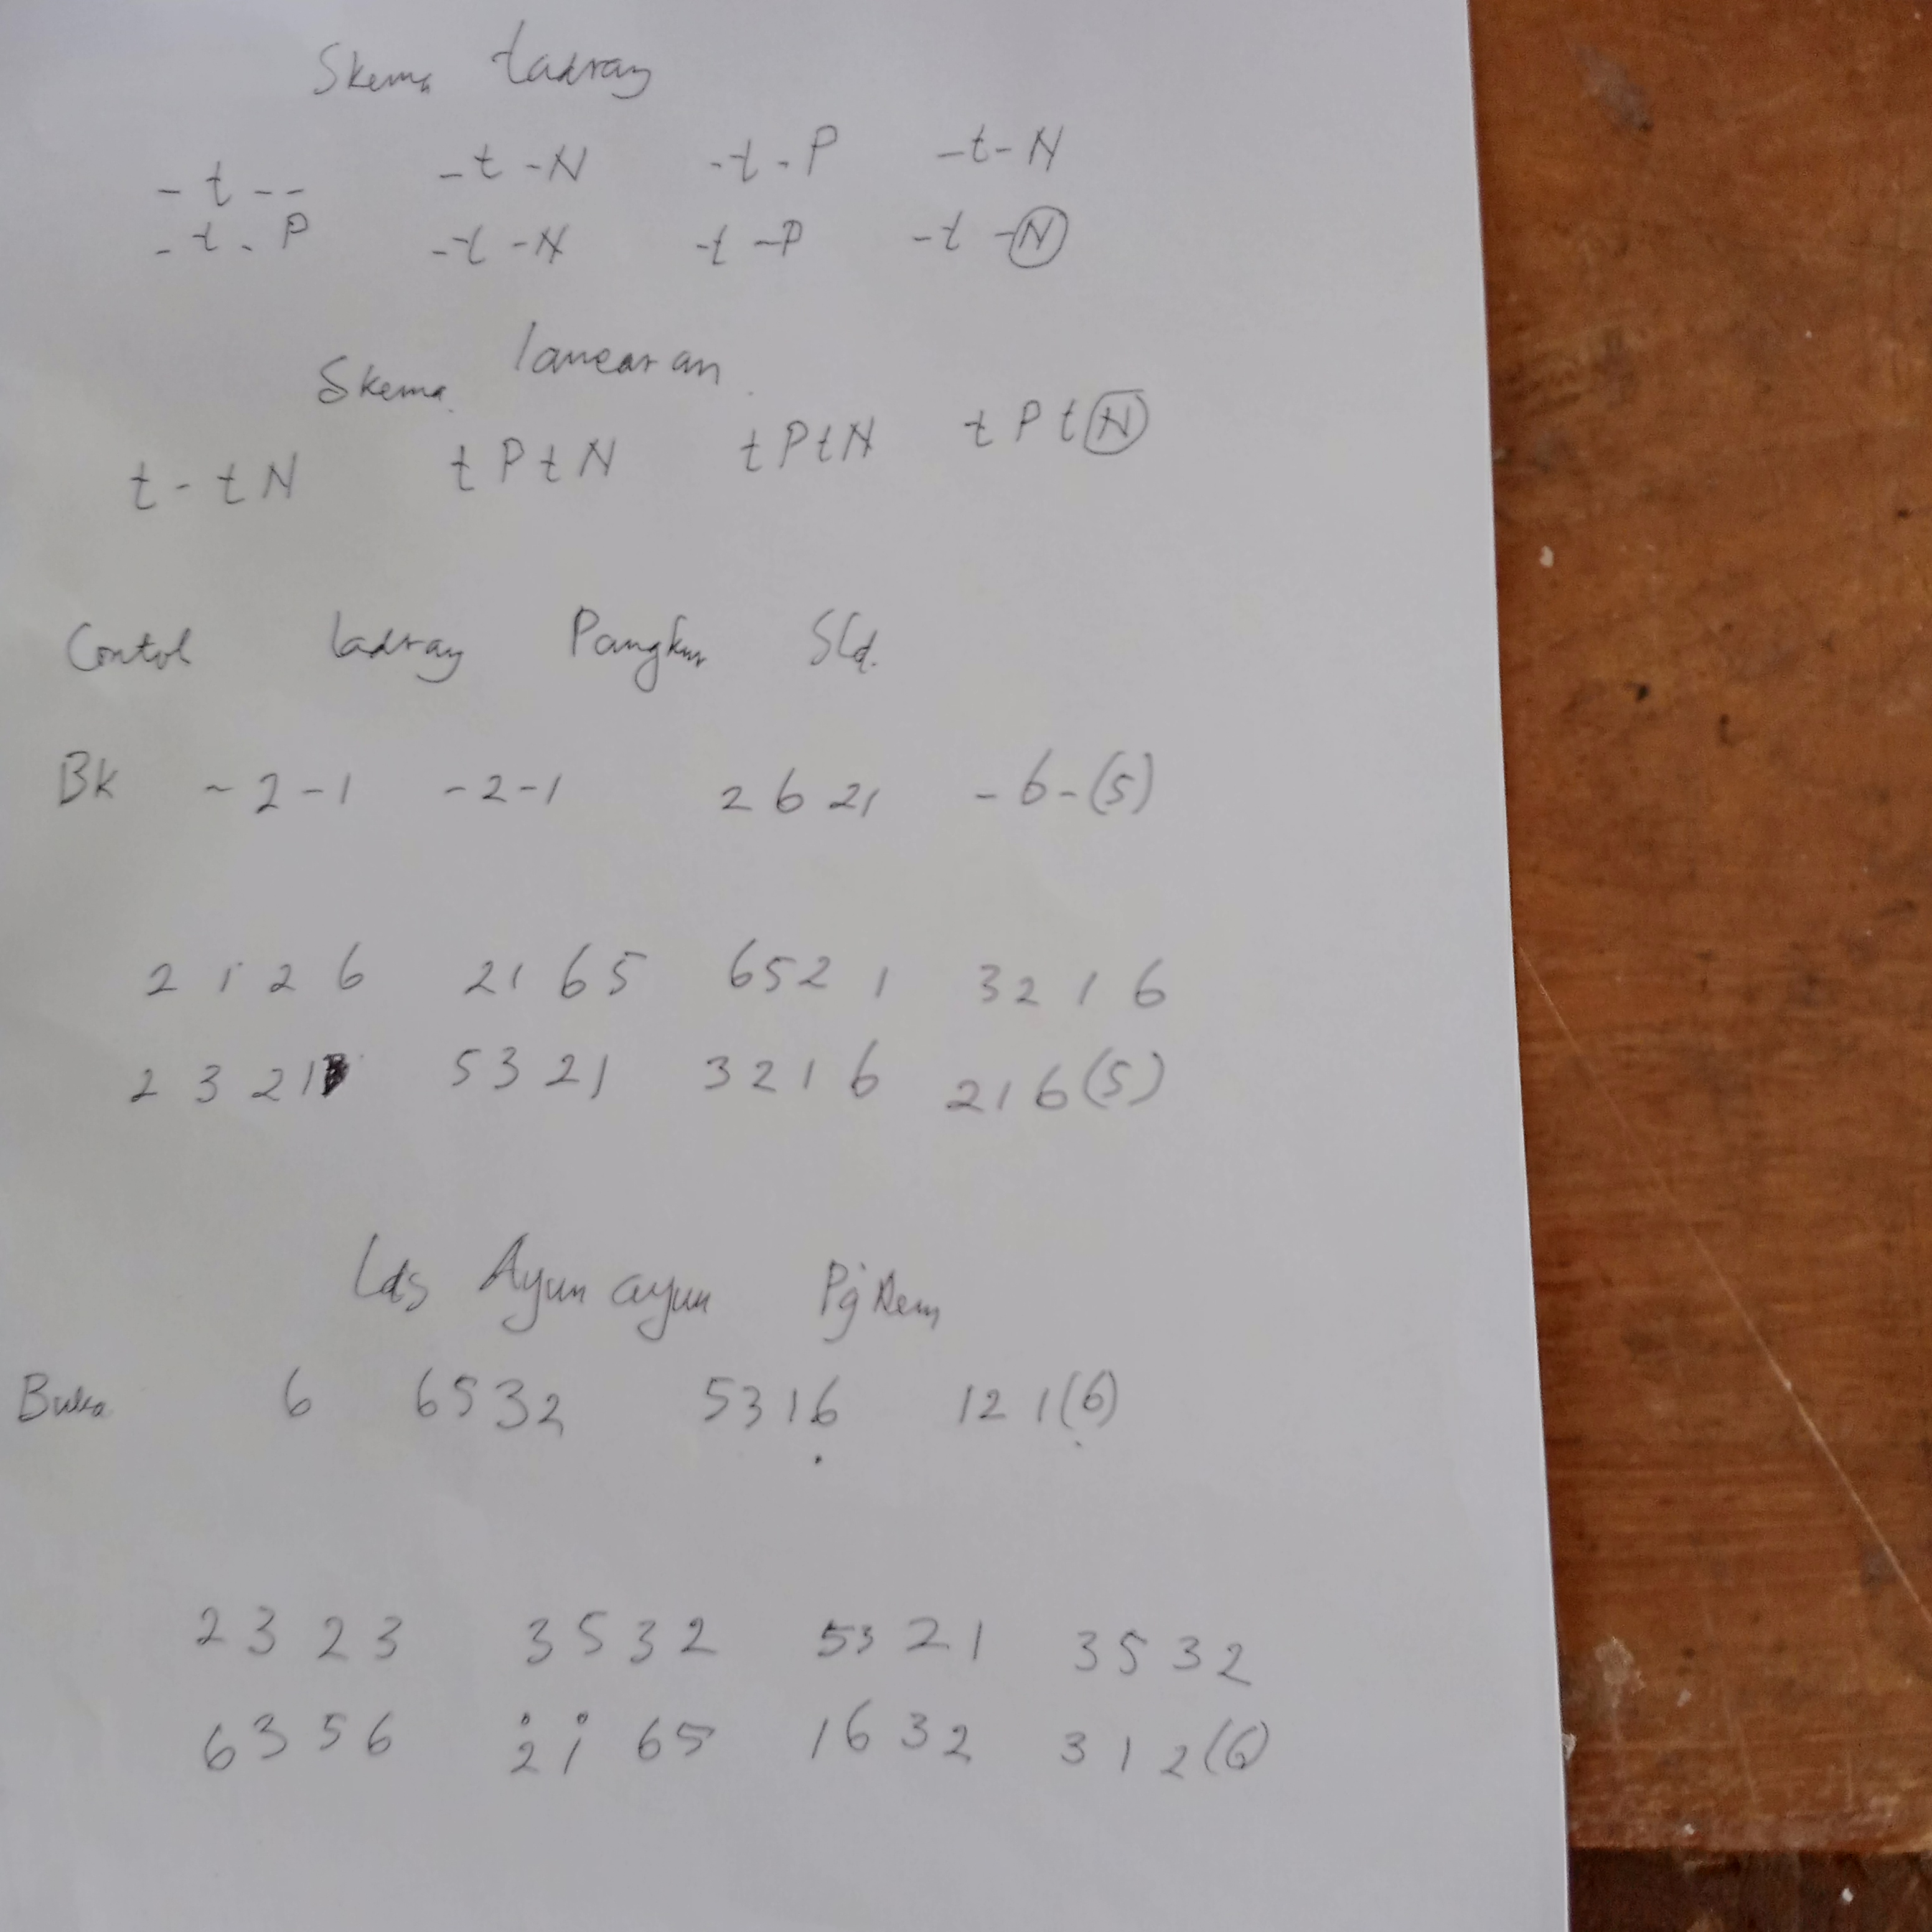 Skema Ladrang
- t - - -t -N -t - P -t- N
- t - P -t -N -t -P -t -(N)
Skema lancaran
t - t N t P t N t P t N t P t (N)
Contoh ladrang Pangkur Sld.
Bk - 2 - 1 - 2 - 1 2 6 2 1 - 6 - (5)
2 1 2 6 2 1 6 5 6 5 2 1 3 2 1 6
2 3 2 1 5 3 2 1 3 2 1 6 2 1 6 (5)
Ldg Ayun ayun Pg Nem
Buka 6 6 5 3 2 5 3 1 6̣ 1 2 1 (6̣)
2 3 2 3 3 5 3 2 5 3 2 1 3 5 3 2
6 3 5 6 2̇ 1̇ 6 5 1 6 3 2 3 1 2 (6)